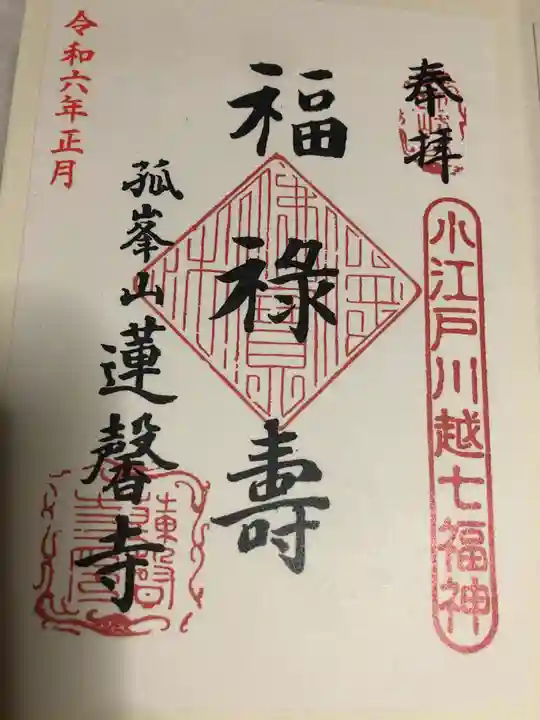 奉拝
小江戸川越七福神
福祿壽
孤峯山蓮馨寺
令和六年正月